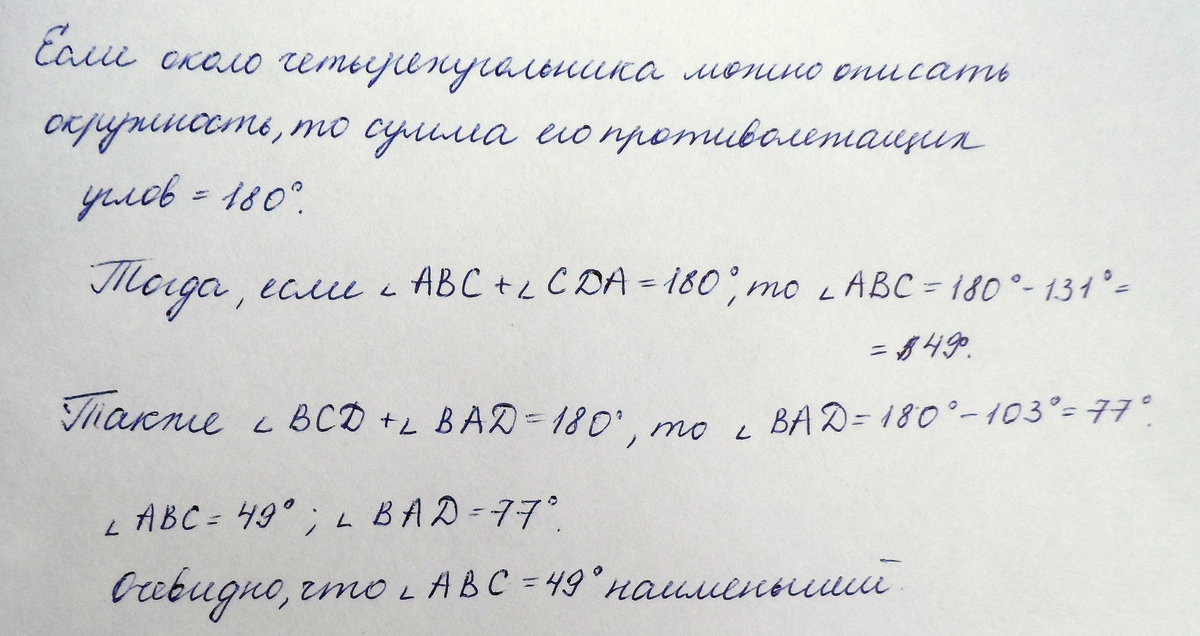 Если около четырехугольника можно описать
окружность, то сумма его противолежащих
углов = 180°.
Тогда, если ∠ABC + ∠CDA = 180°, то ∠ABC = 180° - 131° =
= 49°.
Также ∠BCD + ∠BAD = 180°, то ∠BAD = 180° - 103° = 77°.
∠ABC = 49°; ∠BAD = 77°.
Очевидно, что ∠ABC = 49° наименьший